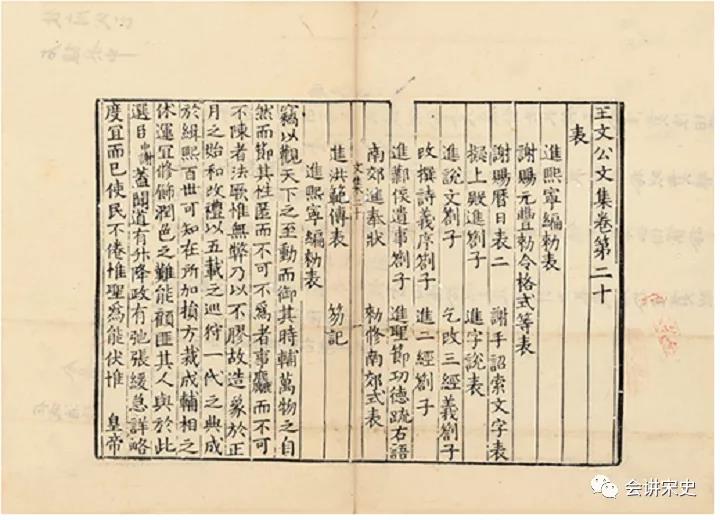 王文公文集卷第二十
表
進熙寧編勑表
謝賜元豐勑令格式等表
謝賜曆日表二 謝手詔索文字表
擬上殿進劄子 進字說表
進說文劄子 乞改三經義劄子
改撰詩義序劄子 進二經劄子
進鄴侯遺事劄子 進聖節功德疏右語
南郊進奉狀 勑修南郊式表
文集二十
進洪範傳表 笏記
進熙寧編勑表
竊以觀天下之至動而御其時輔萬物之自
然而節其性匿而不可不爲者事麤而不可
不陳者法厥惟無弊乃以不膠故造象於正
月之始和改禮以五載之巡狩一代之典成
於緝熙百世可知在所加損方裁成輔相之
休運宜修飾潤色之難能顧匪其人與於此
選 中謝蓋聞道有升降政有弛張緩急詳略
度宜而已使民不倦惟聖爲能伏惟 皇帝
会讲宋史